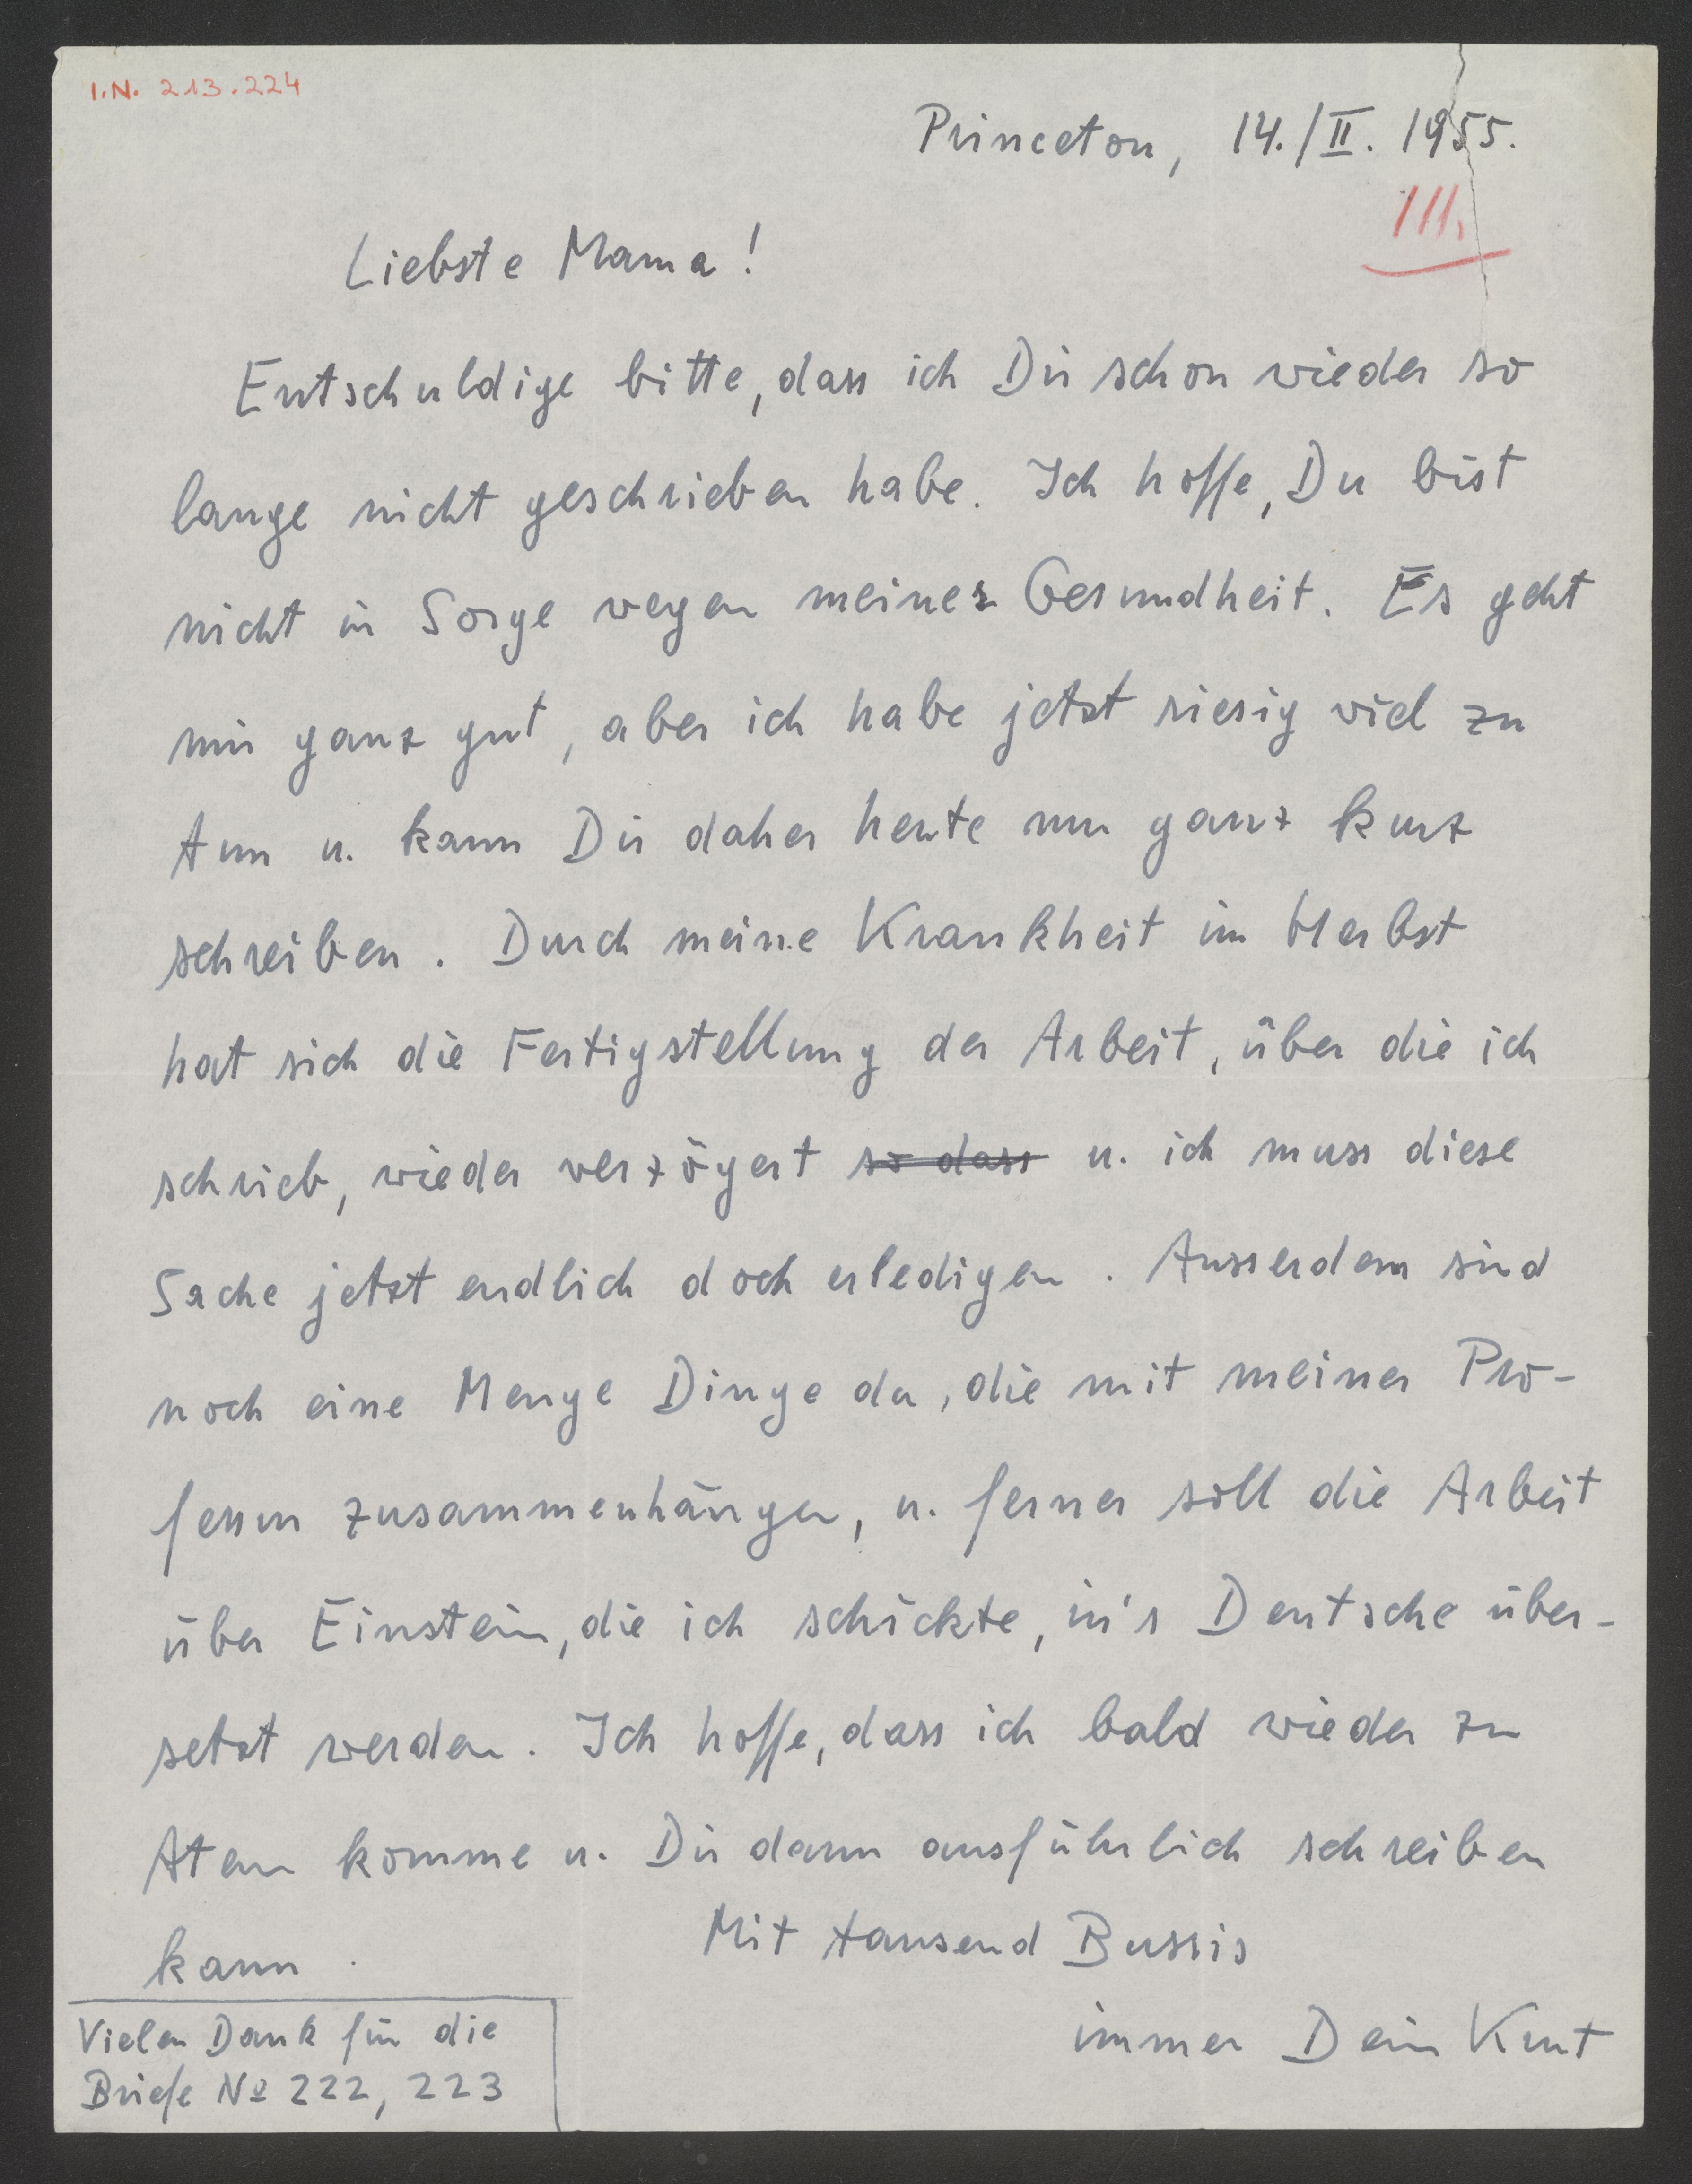 I.N. 213.224
Princeton, 14./II. 1955.
III.
Liebste Mama!
Entschuldige bitte, dass ich Dir schon wieder so
lange nicht geschrieben habe. Ich hoffe, Du bist
nicht in Sorge wegen meiner Gesundheit. Es geht
mir ganz gut, aber ich habe jetzt riesig viel zu
tun u. kann Dir daher heute nur ganz kurz
schreiben. Durch meine Krankheit im Herbst
hat sich die Fertigstellung der Arbeit, über die ich
schrieb, wieder verzögert so dass u. ich muss diese
Sache jetzt endlich doch erledigen. Ausserdem sind
noch eine Menge Dinge da, die mit meiner Pro-
fessur zusammenhängen, u. ferner soll die Arbeit
über Einstein, die ich schickte, in's Deutsche über-
setzt werden. Ich hoffe, dass ich bald wieder zu
Atem komme u. Dir dann ausführlich schreiben
kann.
Mit tausend Bussis
immer Dein Kurt
Vielen Dank für die
Briefe № 222, 223